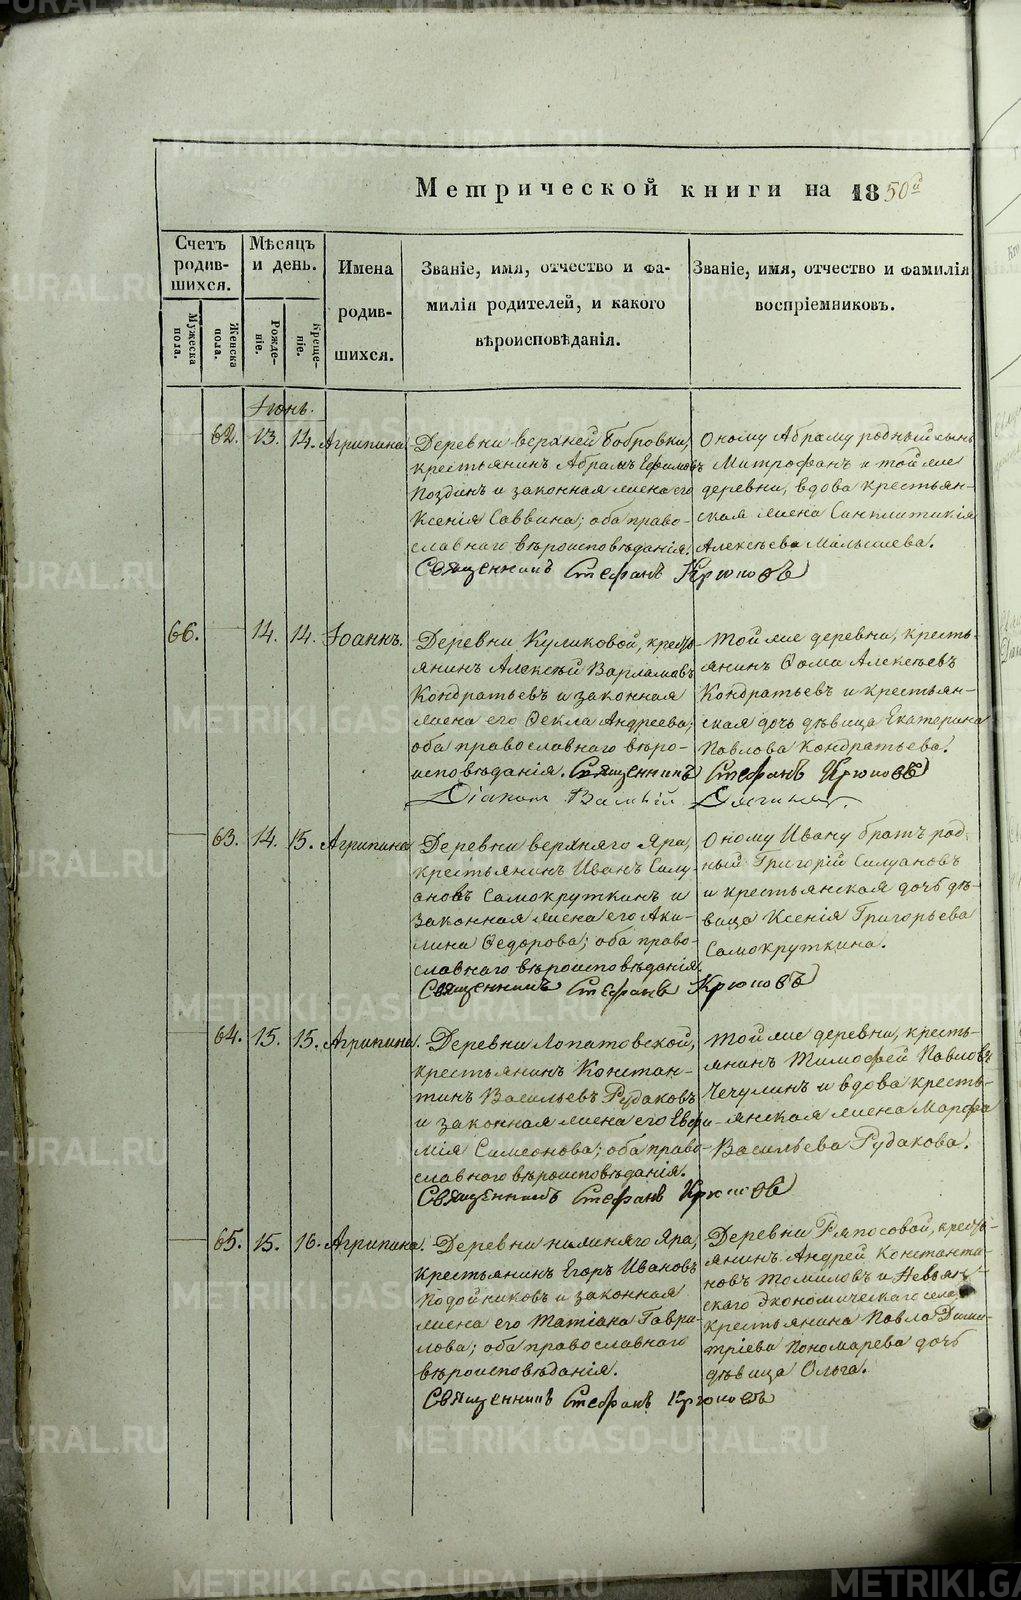 Метрической книги на 1850й
Счетъ родив-шихся.
Мужеска пола.
Женска пола.
Мѣсяцъ и день.
Рожде-ніе.
Креще-ніе.
Имена
родив-
шихся.
Званіе, имя, отчество и фа-
милія родителей, и какого
вѣроисповѣданія.
Званіе, имя, отчество и фамилія
воспріемниковъ.
Іюнь.
62. 13. 14. Агрипина
Деревни верхней Бобровки,
крестьянинъ Абрамъ Ефимовъ
Поздинъ и законная жена его
Ксенія Саввина; оба право-
славнаго вѣроисповѣданія.
Оному Абраму родный сынъ
Митрофанъ и той же
деревни, вдова крестьян-
ская жена Синклитикія
Алексѣева Малышева.
Священникъ Стефанъ Крюковъ
66. 14. 14. Іоаннъ.
Деревни Куликовой, кресть-
янинъ Алексѣй Варламовъ
Кондратьевъ и законная
жена его Ѳекла Андреева;
оба православнаго вѣро-
исповѣданія.
Той же деревни, кресть-
янинъ Ѳома Алексѣевъ
Кондратьевъ и крестьян-
ская дочь дѣвица Екатерина
Павлова Кондратьева.
Священникъ Стефанъ Крюковъ
Діаконъ
63. 14. 15. Агрипина
Деревни верхняго Яра,
крестьянинъ Иванъ Силу-
ановъ Самокруткинъ и
законная жена его Аки-
лина Ѳедорова; оба право-
славнаго вѣроисповѣданія
Оному Ивану братъ род-
ный Григорій Силуановъ
и крестьянская дочь дѣ-
вица Ксенія Григорьева
Самокруткина.
Священникъ Стефанъ Крюковъ
64. 15. 15. Агрипина.
Деревни Лопатовской,
крестьянинъ Констан-
тинъ Васильевъ Рудаковъ
и законная жена его Евфи-
мія Симеонова; оба право-
славнаго вѣроисповѣданія.
Той же деревни, кресть-
янинъ Тимофей Павловъ
Чечулинъ и вдова кресть-
янская жена Марфа
Васильева Рудакова.
Священникъ Стефанъ Крюковъ
65. 15. 16. Агрипина.
Деревни нижняго Яра,
крестьянинъ Егоръ Ивановъ
Подойниковъ и законная
жена его Татіана Гаври-
лова; оба православнаго
вѣроисповѣданія.
Деревни Ряпосовой, кресть-
янинъ Андрей Константи-
новъ Томиловъ и Невьян-
скаго Экономическаго села
крестьянина Павла Дими-
тріева Пономарева дочь
дѣвица Ольга.
Священникъ Стефанъ Крюковъ
METRIKI.GASO-URAL.RU